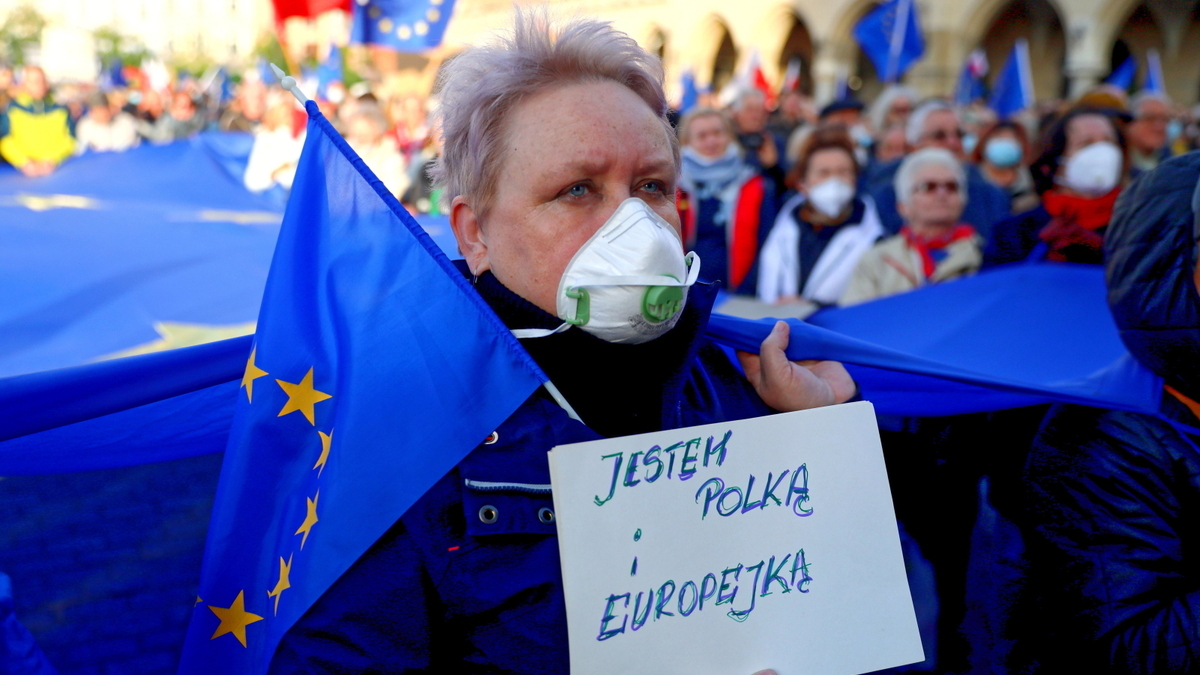 JESTEM
POLKĄ
i
EUROPEJKĄ